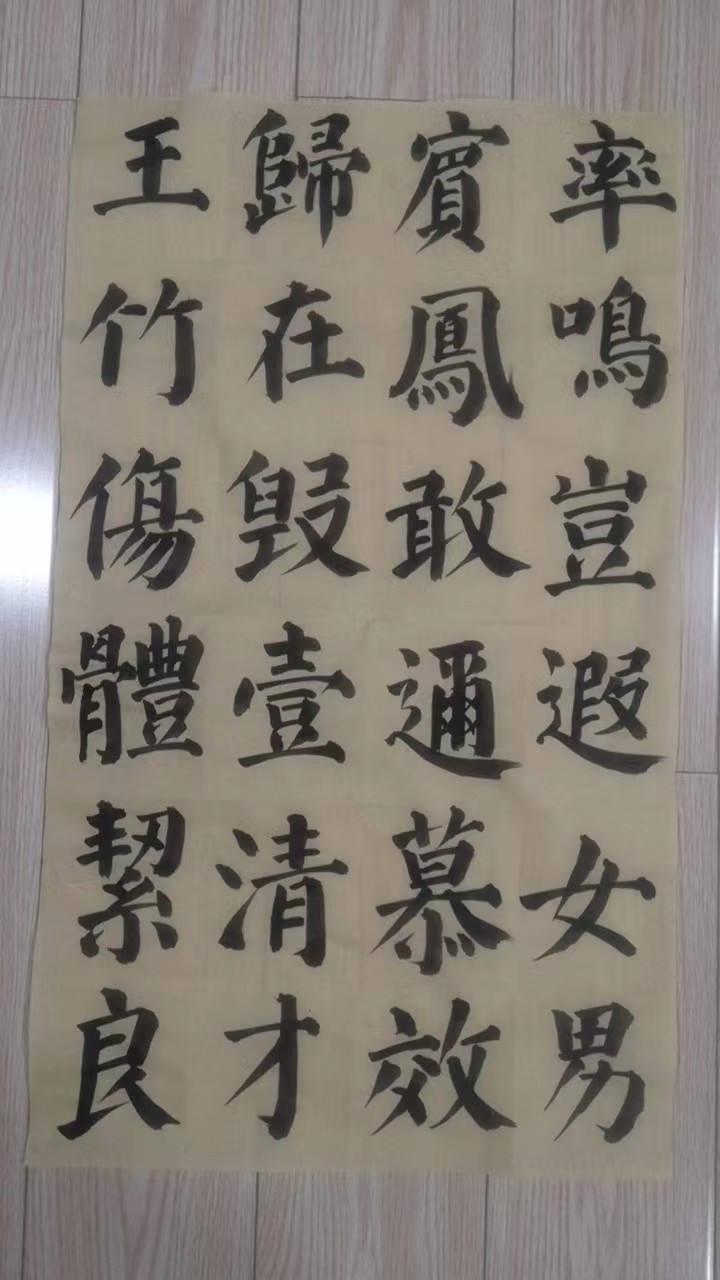 率賓歸王
鳴鳳在竹
豈敢毁傷
遐邇壹體
女慕清絜
男效才良